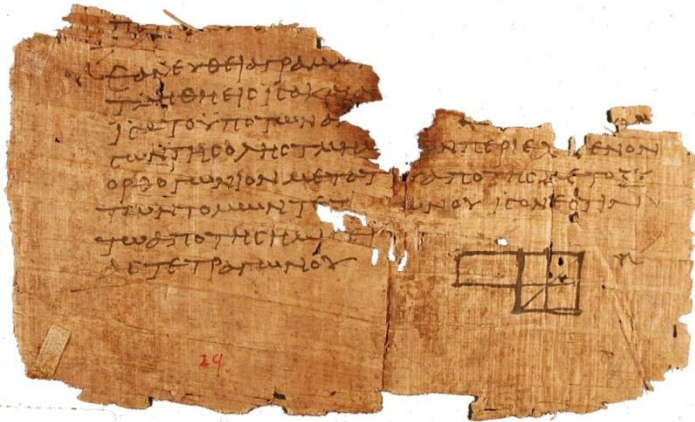 ΕΑΝ ΕΥΘΕΙΑ ΓΡΑΜΜ
ΤΜΗΘΗ ΕΙϹ ΙϹΑ ΚΑΙ
ΙϹΑ ΤΟ ΥΠΟ ΤΩΝ ΑΝ
ϹΩΝ ΤΗϹ ΟΛΗϹ ΤΜΗΜ ΩΝ ΠΕΡΙΕΧ ΕΝΟΝ
ΟΡΘΟΓΩΝΙΟΝ ΜΕΤΑ Τ ΑΠΟ ΤΗϹ ΜΕΤΟΞΥ
ΤΩΝ ΤΟΜΩΝ ΤΕΤ ΩΝΟΥ ΙϹΟΝ ΕϹΤΙΝ
ΤΩ ΑΠΟ ΤΗϹ ΗΜΙ
ΑϹ ΤΕΤΡΑΓΩΝΟΥ
29